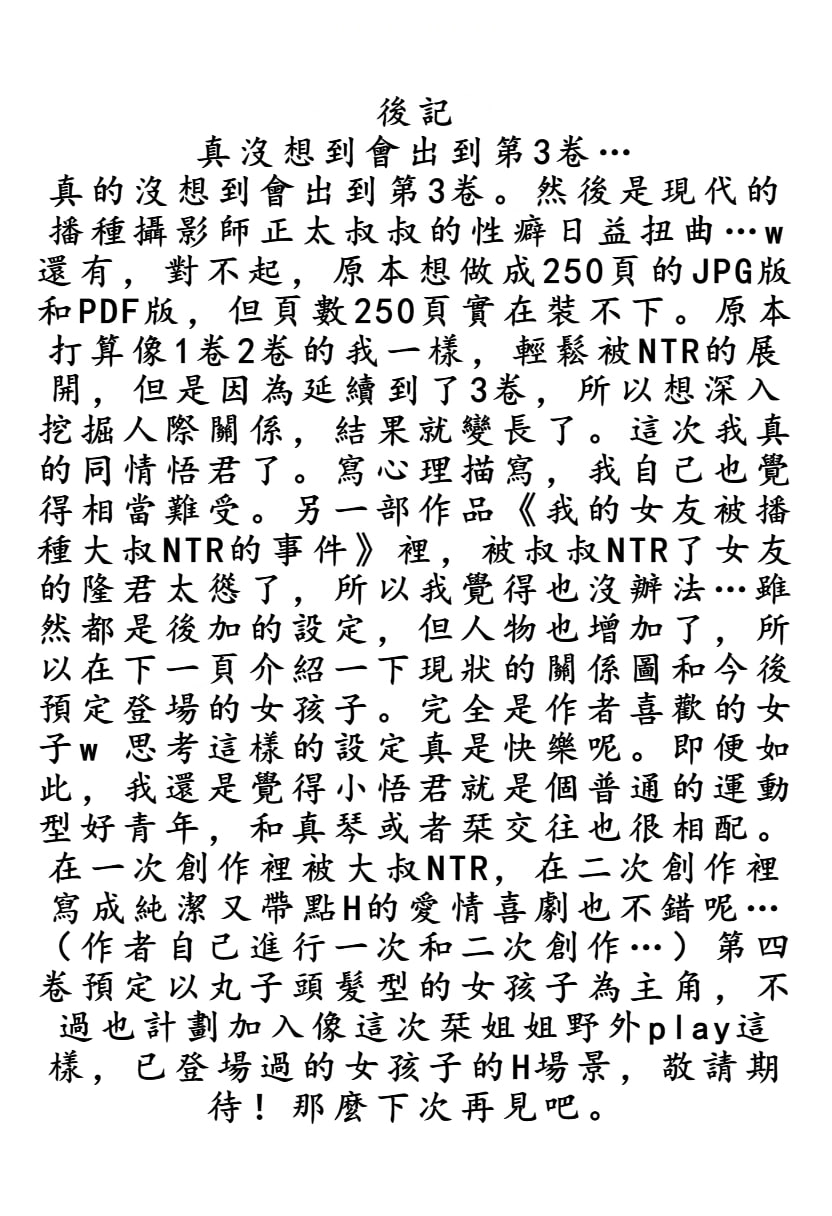 後記
真沒想到會出到第3卷…
真的沒想到會出到第3卷。然後是現代的
播種攝影師正太叔叔的性癖日益扭曲…w
還有，對不起，原本想做成250頁的JPG版
和PDF版，但頁數250頁實在裝不下。原本
打算像1卷2卷的我一樣，輕鬆被NTR的展
開，但是因為延續到了3卷，所以想深入
挖掘人際關係，結果就變長了。這次我真
的同情悟君了。寫心理描寫，我自己也覺
得相當難受。另一部作品《我的女友被播
種大叔NTR的事件》裡，被叔叔NTR了女友
的隆君太慫了，所以我覺得也沒辦法…雖
然都是後加的設定，但人物也增加了，所
以在下一頁介紹一下現狀的關係圖和今後
預定登場的女孩子。完全是作者喜歡的女
子w 思考這樣的設定真是快樂呢。即便如
此，我還是覺得小悟君就是個普通的運動
型好青年，和真琴或者栞交往也很相配。
在一次創作裡被大叔NTR，在二次創作裡
寫成純潔又帶點H的愛情喜劇也不錯呢…
（作者自己進行一次和二次創作…）第四
卷預定以丸子頭髮型的女孩子為主角，不
過也計劃加入像這次栞姐姐野外play這
樣，已登場過的女孩子的H場景，敬請期
待！那麼下次再見吧。